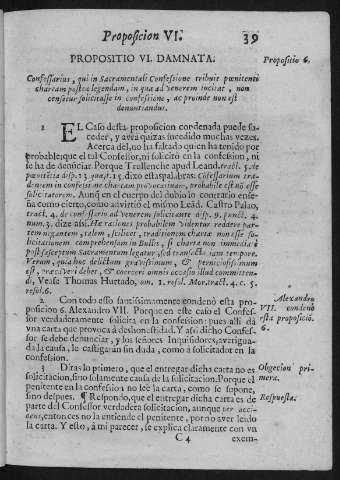 Proposicion VI.
39
PROPOSITIO VI. DAMNATA.
Propositio 6.
Confessarius, qui in Sacramentali Confessione tribuit pœnitenti
chartam postea legendam, in qua ad venerem incitat, non
censetur solicitasse in confessione, ac proinde non est
denuntiandus.
1 EL Caso desta proposicion condenada puede su-
ceder, y avrà quizas sucedido muchas vezes.
Acerca del, no ha faltado quien ha tenido por
probable, que el tal Confessor, ni solicitò en la confession, ni
se ha de denunciar. Porque Trullenche apud Leand. tract. 5. de
pœnitetia disp. 13. quæst. 15. dixo estas palabras: Cōfessarium tra-
dentem in confessione chartam provocativam, probabile est nō esse
solicitatorem. Aunq̃ en el cuerpo del dubio lo contrario ense-
ña como cierto, como advirtiò el mismo Leād. Castro Palao,
tract. 4. de confessario ad venerem solicitante disp. 9. punct. 4.
num. 3. dize assi: Hæ rationes probabilem videntur reddere par-
tem negantem, talem, scilicet, traditionem chartæ non esse so-
licitationem comprehensam in Bullis, si charta non immediatè
post susceptum Sacramentum legatur, sed transacto iam tempore.
Verum, quia hoc delictum gravissimum, & perniciosissimum
est, præcaveri debet, & coerceri omnis occasio illud committen-
di, Vease Thomas Hurtado, tom. 1. resol. Mor. tract. 4. c. 5.
resol. 6.
2 Con todo esso santissimamente condenò esta pro-
posicion 6. Alexandro VII. Porque en este caso el Confes-
sor verdaderamente solicita en la confession: pues allì dà
vna carta que provoca à deshonestidad. Y assi dicho Confes-
sor se debe denunciar, y los señores Inquisidores, averigua-
da la causa, le castigaràn sin duda, como à solicitador en la
confession.
Alexandro
VII. condenò
esta proposiciō
6.
3 Diràs lo primero, que el entregar dicha carta no es
solicitacion, sino solamente causa de la solicitacion. Porque el
penitente en la confession no lee la carta, como se supone,
sino despues. ¶ Respondo, que el entregar dicha carta es de
parte del Confessor verdadera solicitacion, aunque per acci-
dens, entonces no la entiende el penitente, por no aver leido
la carta. Y esto, à mi parecer, se explica claramente con vn
Obgecion pri-
mera.
Respuesta.
C 4
exem-